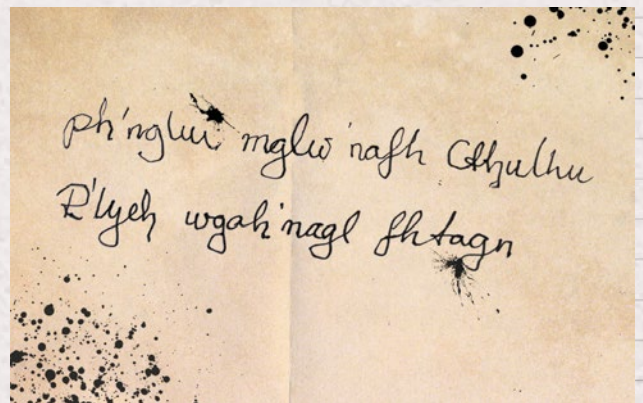 ph'nglui mglw'nafh Cthulhu
R'lyeh wgah'nagl fhtagn